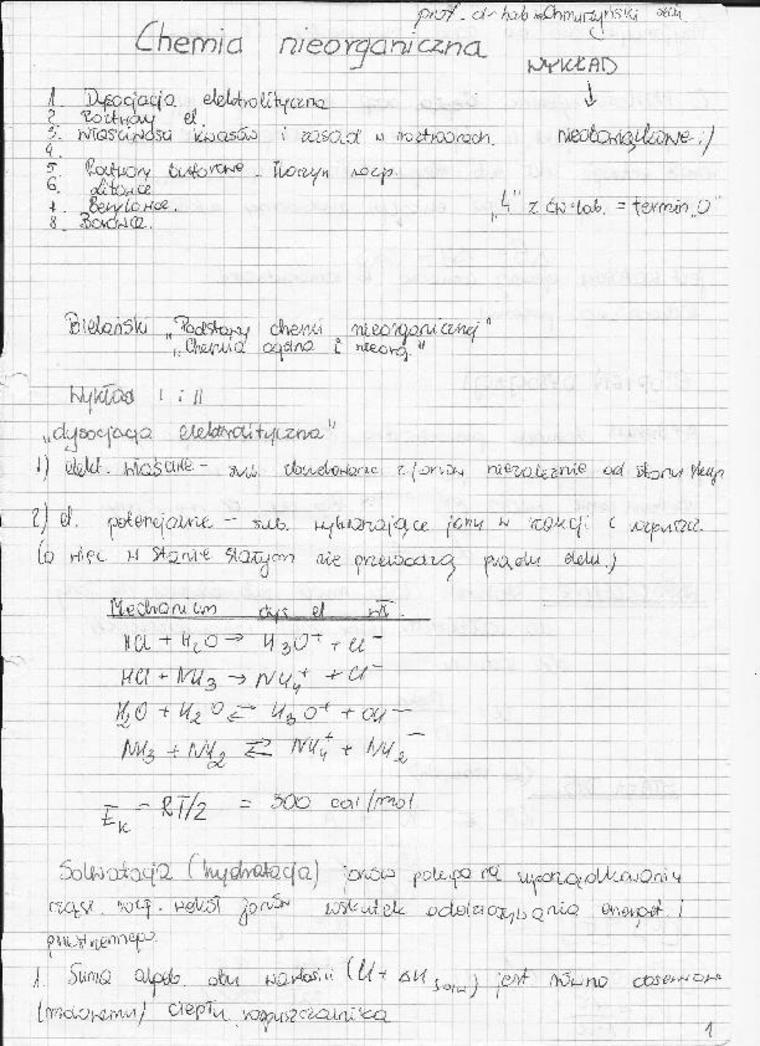 prof. dr hab. Chmurzyński
Chemia nieorganiczna
WYKŁAD
↓
nieobowiązkowe :)
„4" z ćw. lab. = termin „0"
1. Dysocjacja elektrolityczna
2. Roztwory el.
3. Właściwości kwasów i zasad w roztworach.
4.
5. Roztwory buforowe. Iloczyn rozp.
6. Litowce
7. Berylowce.
8. Borowce.
Bielański „Podstawy chemii nieorganicznej"
„Chemia ogólna i nieorg."
Wykład I i II
„dysocjacja elektrolityczna"
1) elekt. właściwe – sub. zbudowane z jonów niezależnie od stanu skup.
2) el. potencjalne – sub. wytwarzające jony w reakcji z rozpuszcz.
(a więc w stanie stałym nie przewodzą prądu elektr.)
Mechanizm dys. el.
HCl + H2O → H3O+ + Cl−
HCl + NH3 → NH4+ + Cl−
H2O + H2O ⇄ H3O+ + OH−
NH3 + NH2 ⇄ NH4+ + NH2−
Ek = RT/2 = 300 cal/mol
Solwatacja (hydratacja) jonów polega na uporządkowaniu
cząst. rozp. wokół jonów wskutek oddziaływania energet. i
przestrzennego.
1. Suma algeb. obu wartości (U + ΔH solw) jest równa
(molowemu) ciepłu rozpuszczalnika
1